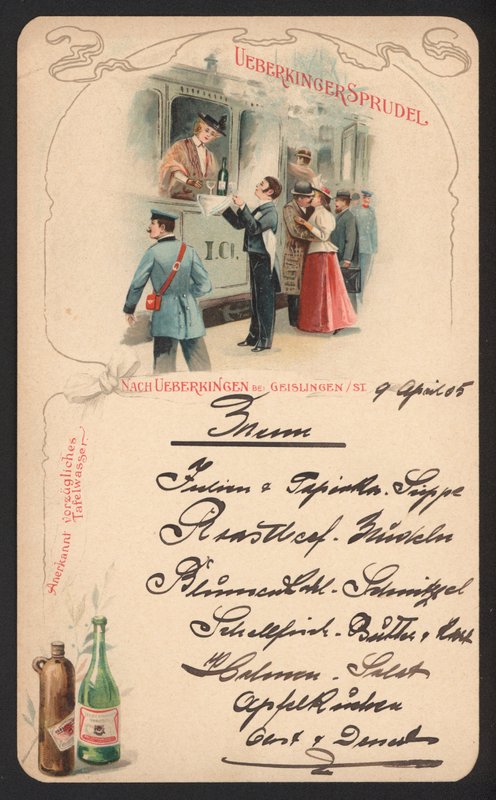 UEBERKINGER SPRUDEL
I.Cl.
NACH UEBERKINGEN BEI GEISLINGEN /ST.
9 April 05
Menu
Anerkannt vorzügliches
Tafelwasser
Julien & Tapioka. Suppe
Roastbeef. Nudeln
Blumenkohl. Schnitzel
Schellfisch. Butter & Kart
Salat
Apfelkuchen
& Dessert